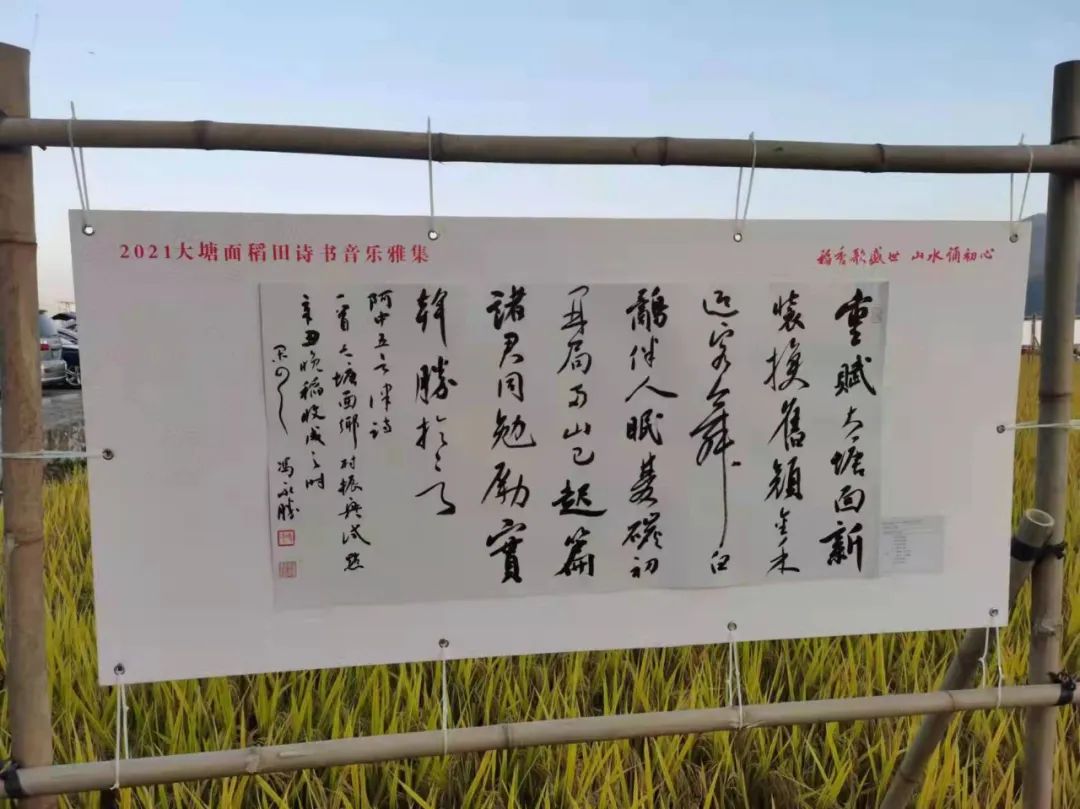 2021大塘面稻田诗书音乐雅集
稻香歌盛世 山水诵初心
重赋大塘面新
装换舊颜金禾
迎客舞白
伴人眠基礎初
具局两山已起篇
諸君同勉励實
幹勝於言
阿中五言律诗
一首大塘面乡村振兴试点
辛丑晚稻收成之时
冯永胜